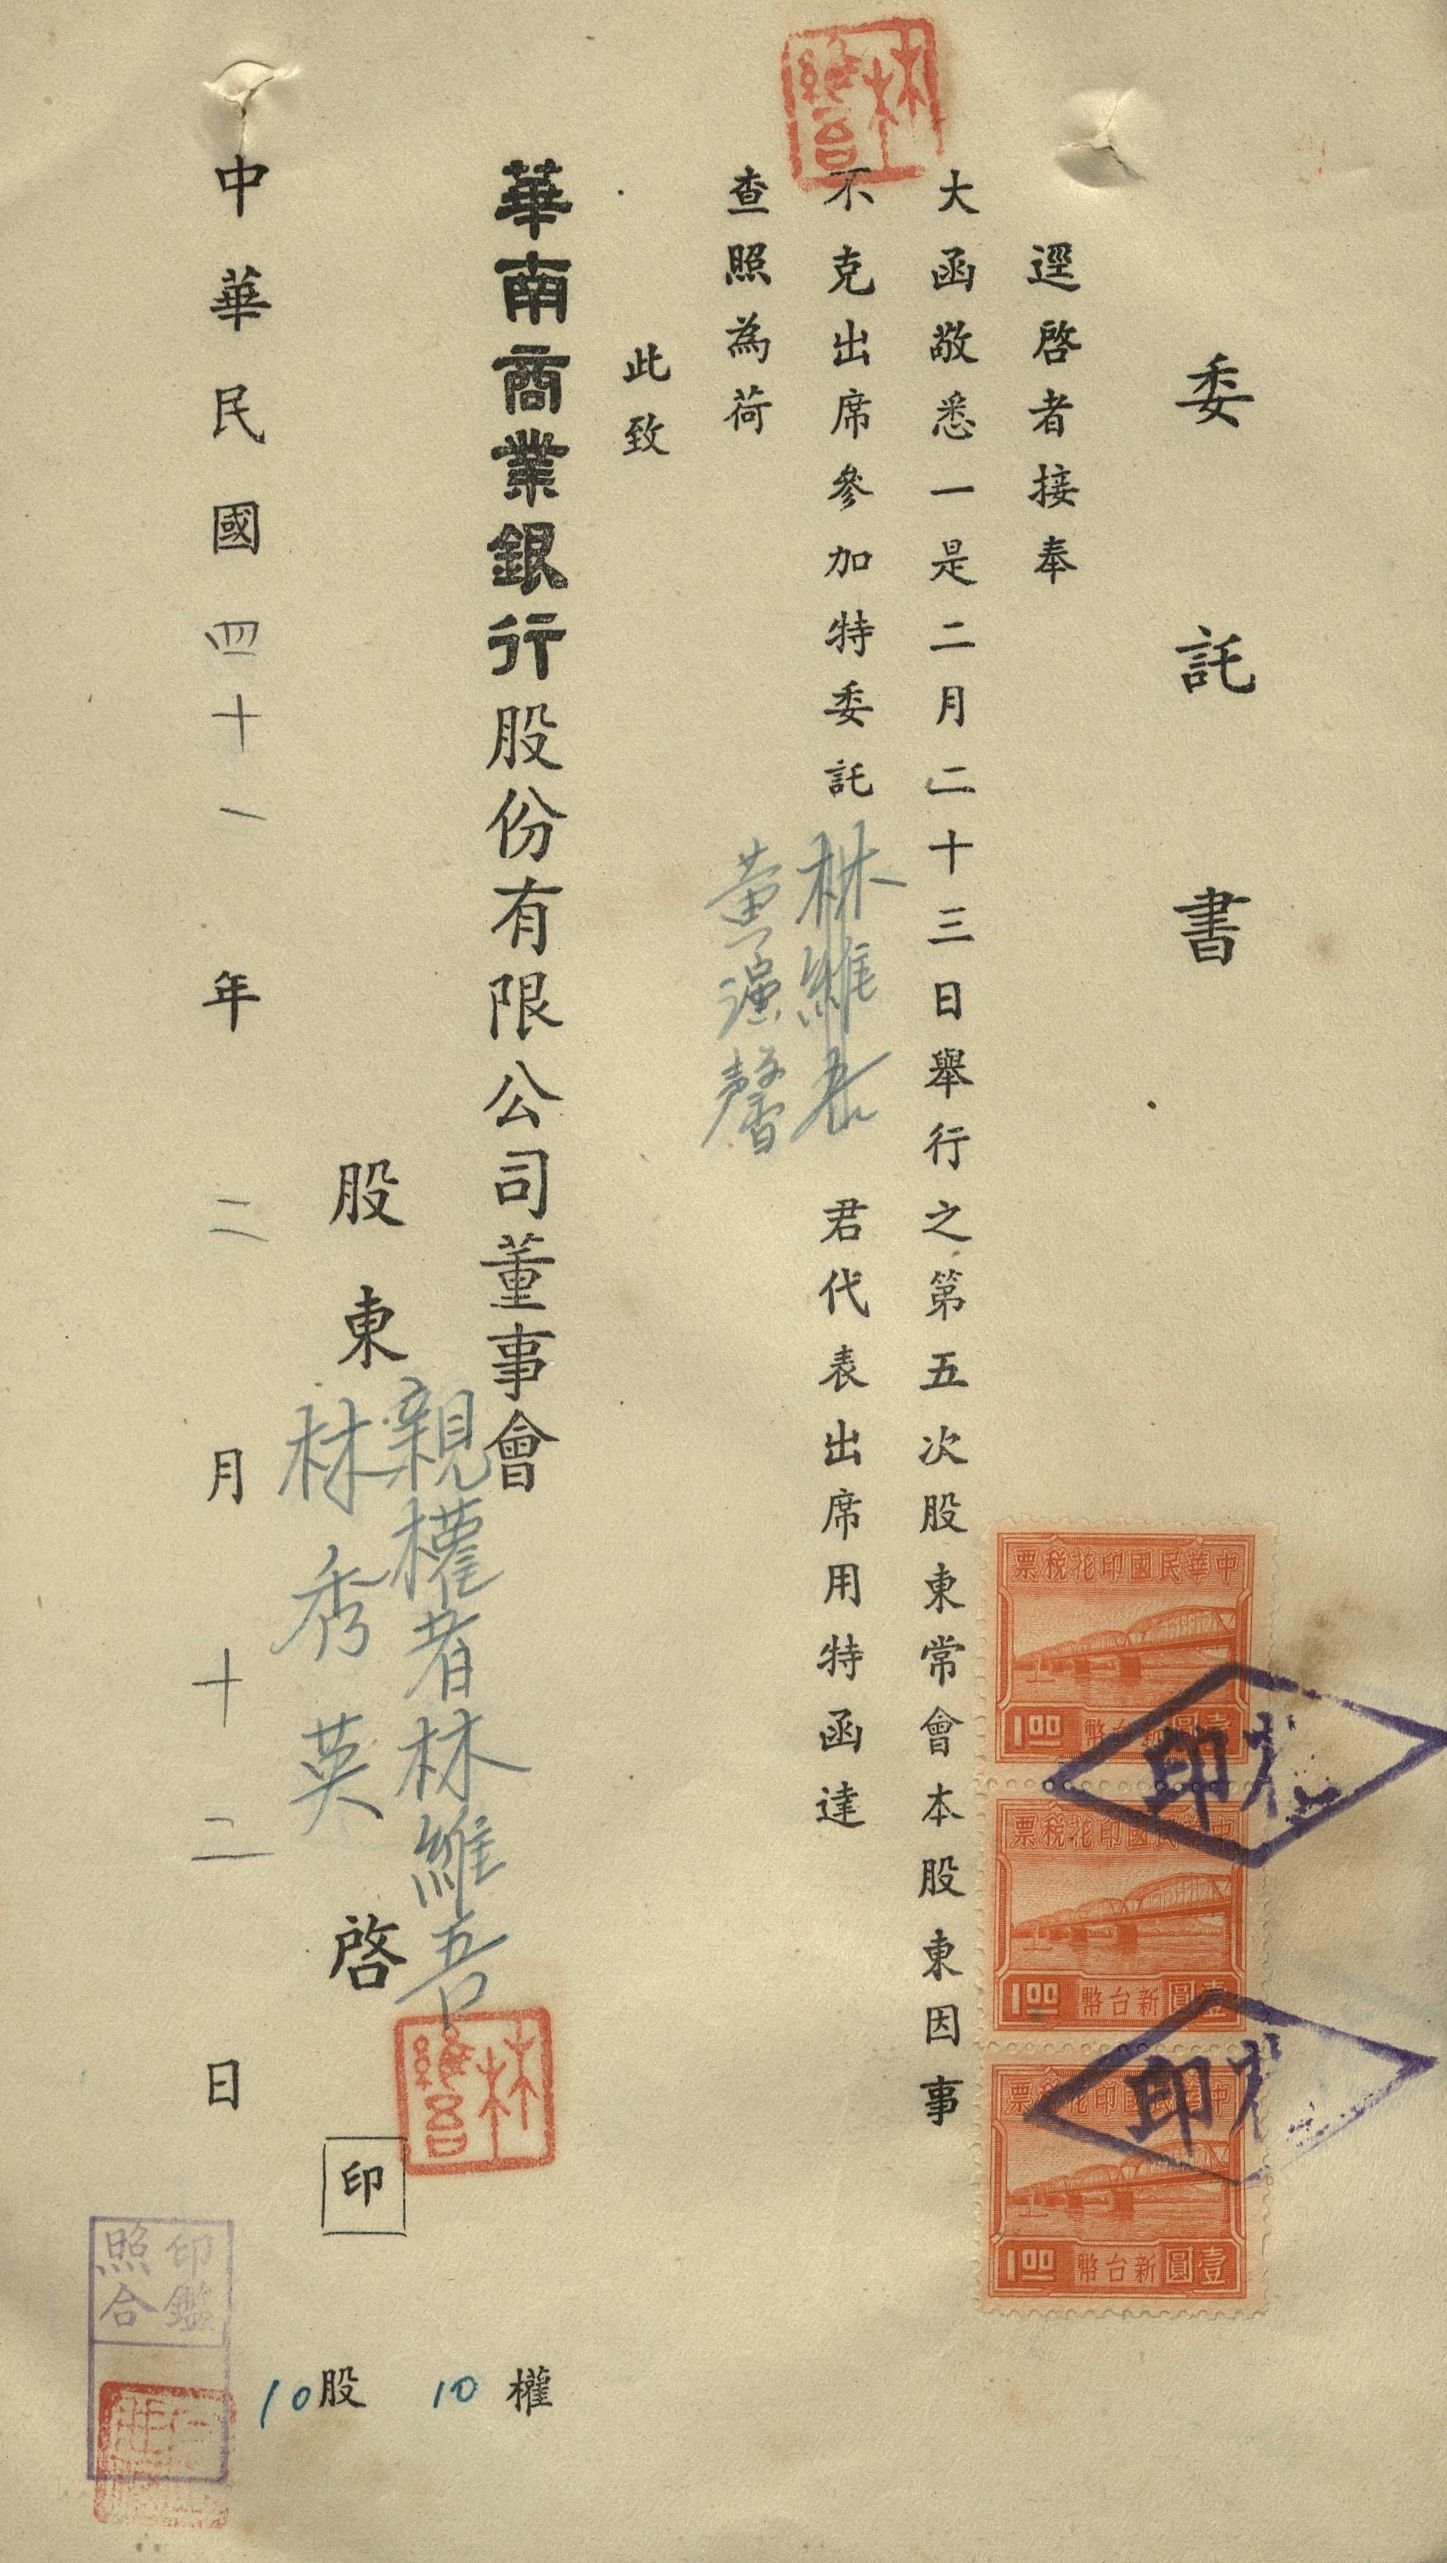 委託書
逕啓者接奉
大函敬悉一是二月二十三日舉行之第五次股東常會本股東因事
不克出席參加特委託林維吾君代表出席用特函達
黄深馨
查照為荷
此致
華南商業銀行股份有限公司董事會
親權者林維吾
股東林秀英啓
印
中華民國四十一年二月十二日
10權
10股
林維吾
林維吾
印鑑
照合
中華民國印花稅票
1.00 新台幣壹圓
中華民國印花稅票
1.00 新台幣壹圓
中華民國印花稅票
1.00 新台幣壹圓
印
印